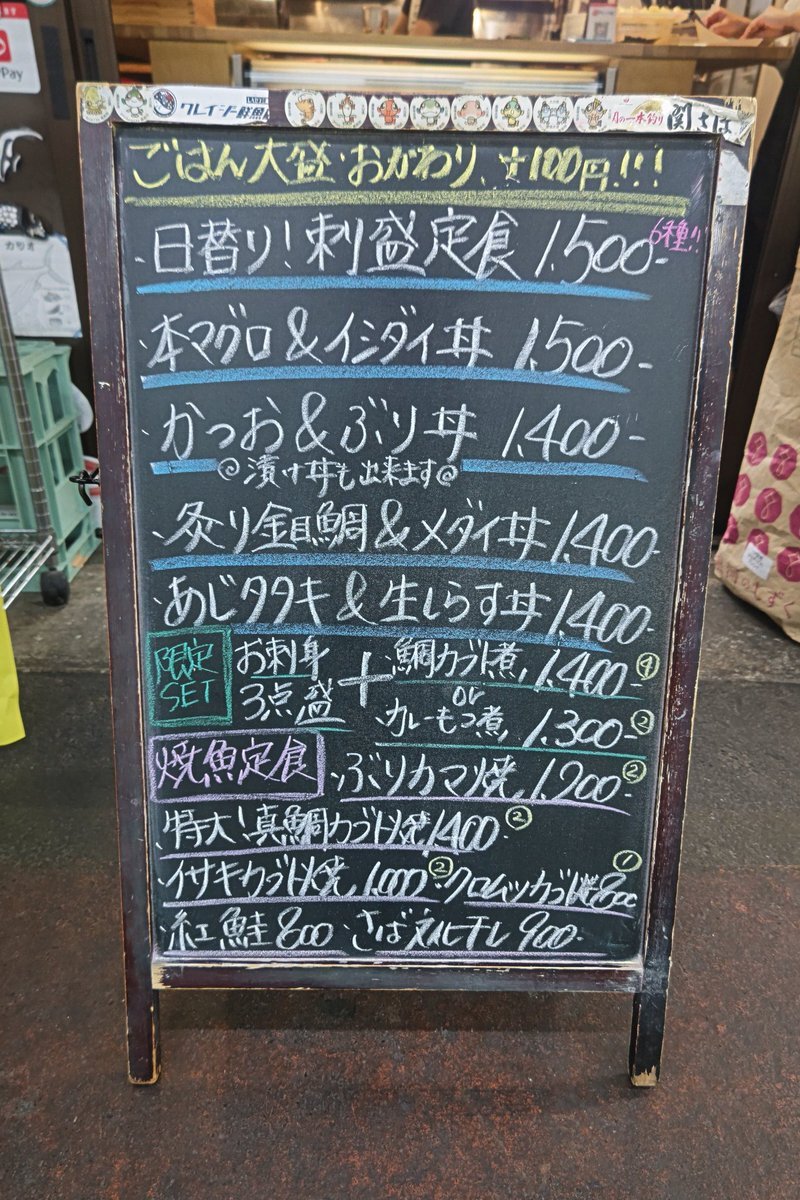 Pay
クレイジー鮮魚
月の一本釣り 関さば
カツオ
ごはん大盛・おかわり、+100円!!!
・日替り!刺盛定食 1,500- 6種!!
・本マグロ&イシダイ丼 1,500-
・かつお&ぶり丼 1,400-
◎漬け丼も出来ます◎
・炙り金目鯛&メダイ丼 1,400-
・あじタタキ&生しらす丼 1,400-
限定SET お刺身3点盛 + ・鯛カブト煮, 1,400- ④
or
・カレーもつ煮, 1,300- ②
焼魚定食 ・ぶりカマ焼 1,200- ②
・特大!真鯛カブト焼 1400- ②
・イサキカブト焼 1,000- ② ・クロムツカブト焼 800 ①
・紅鮭 800 ・さば文化干し 900-